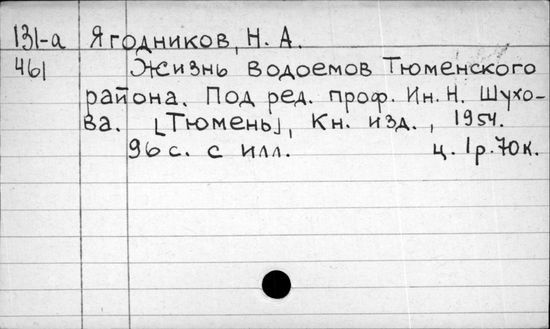 131-а Ягодников, Н. А.
461 Жизнь водоемов Тюменского
района. Под ред. проф. Ин. Н. Шухо-
ва. [Тюмень], Кн. изд., 1954.
96 с. с илл. ц. 1р.70к.